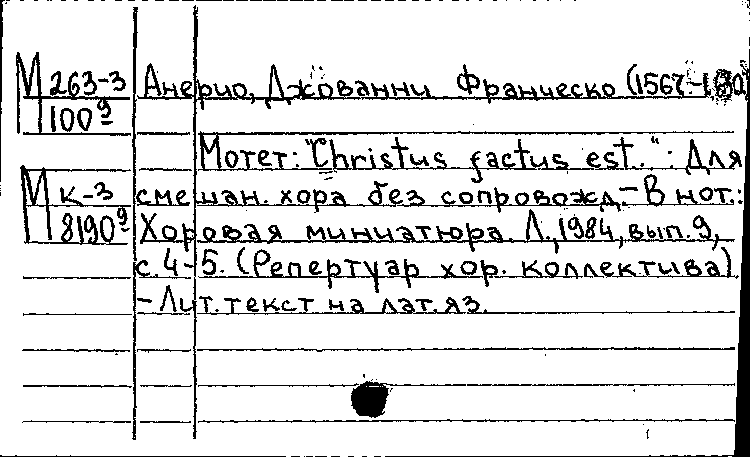 М 263-3 Анерио, Джованни Франческо (1567-
100⁹
Мотет: "Christus factus est.": Для
М К-3 смешан. хора без сопровожд.- В нот.:
8190⁹ Хоровая миниатюра. Л., 1984, вып. 9,
с. 4-5. (Репертуар хор. коллектива)
- Лит. текст на лат. яз.